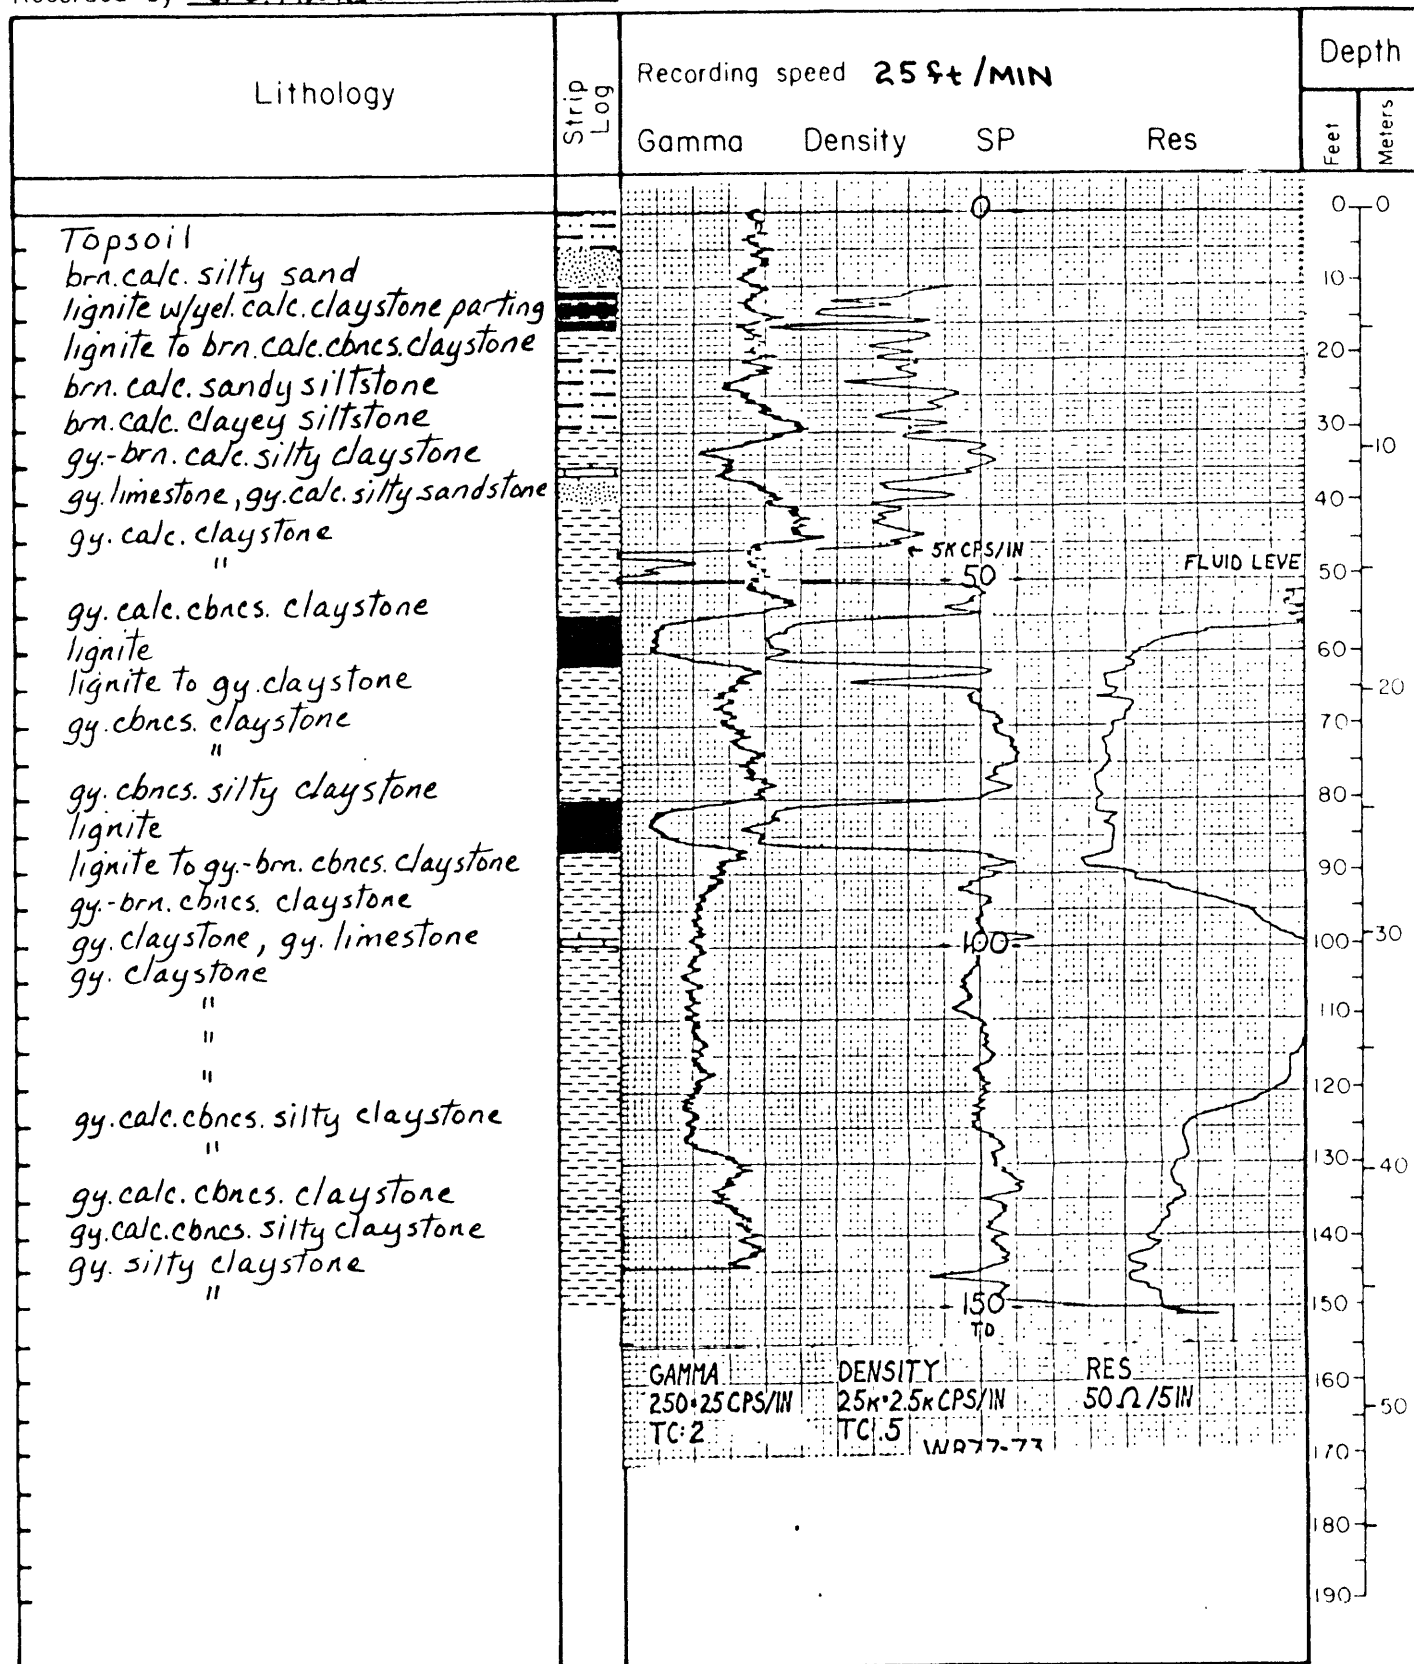 Recorded by
Lithology
Strip Log
Recording speed 25 ft/MIN
Gamma Density SP Res
Depth
Feet
Meters
Topsoil
brn. calc. silty sand
lignite w/yel. calc. claystone parting
lignite to brn. calc. cbncs. claystone
brn. calc. sandy siltstone
brn. calc. clayey siltstone
gy.-brn. calc. silty claystone
gy. limestone, gy. calc. silty sandstone
gy. calc. claystone
"
gy. calc. cbncs. claystone
lignite
lignite to gy. claystone
gy. cbncs. claystone
"
gy. cbncs. silty claystone
lignite
lignite to gy.-brn. cbncs. claystone
gy.-brn. cbncs. claystone
gy. claystone, gy. limestone
gy. claystone
"
"
"
gy. calc. cbncs. silty claystone
"
gy. calc. cbncs. claystone
gy. calc. cbncs. silty claystone
gy. silty claystone
"
0
← 5K CPS/IN
50
FLUID LEVE
100
150
TD
GAMMA
250·25 CPS/IN
TC:2
DENSITY
25K·2.5K CPS/IN
TC:.5
RES
50Ω/5IN
WR77-73
0
10
20
30
40
50
60
70
80
90
100
110
120
130
140
150
160
170
180
190
0
10
20
30
40
50